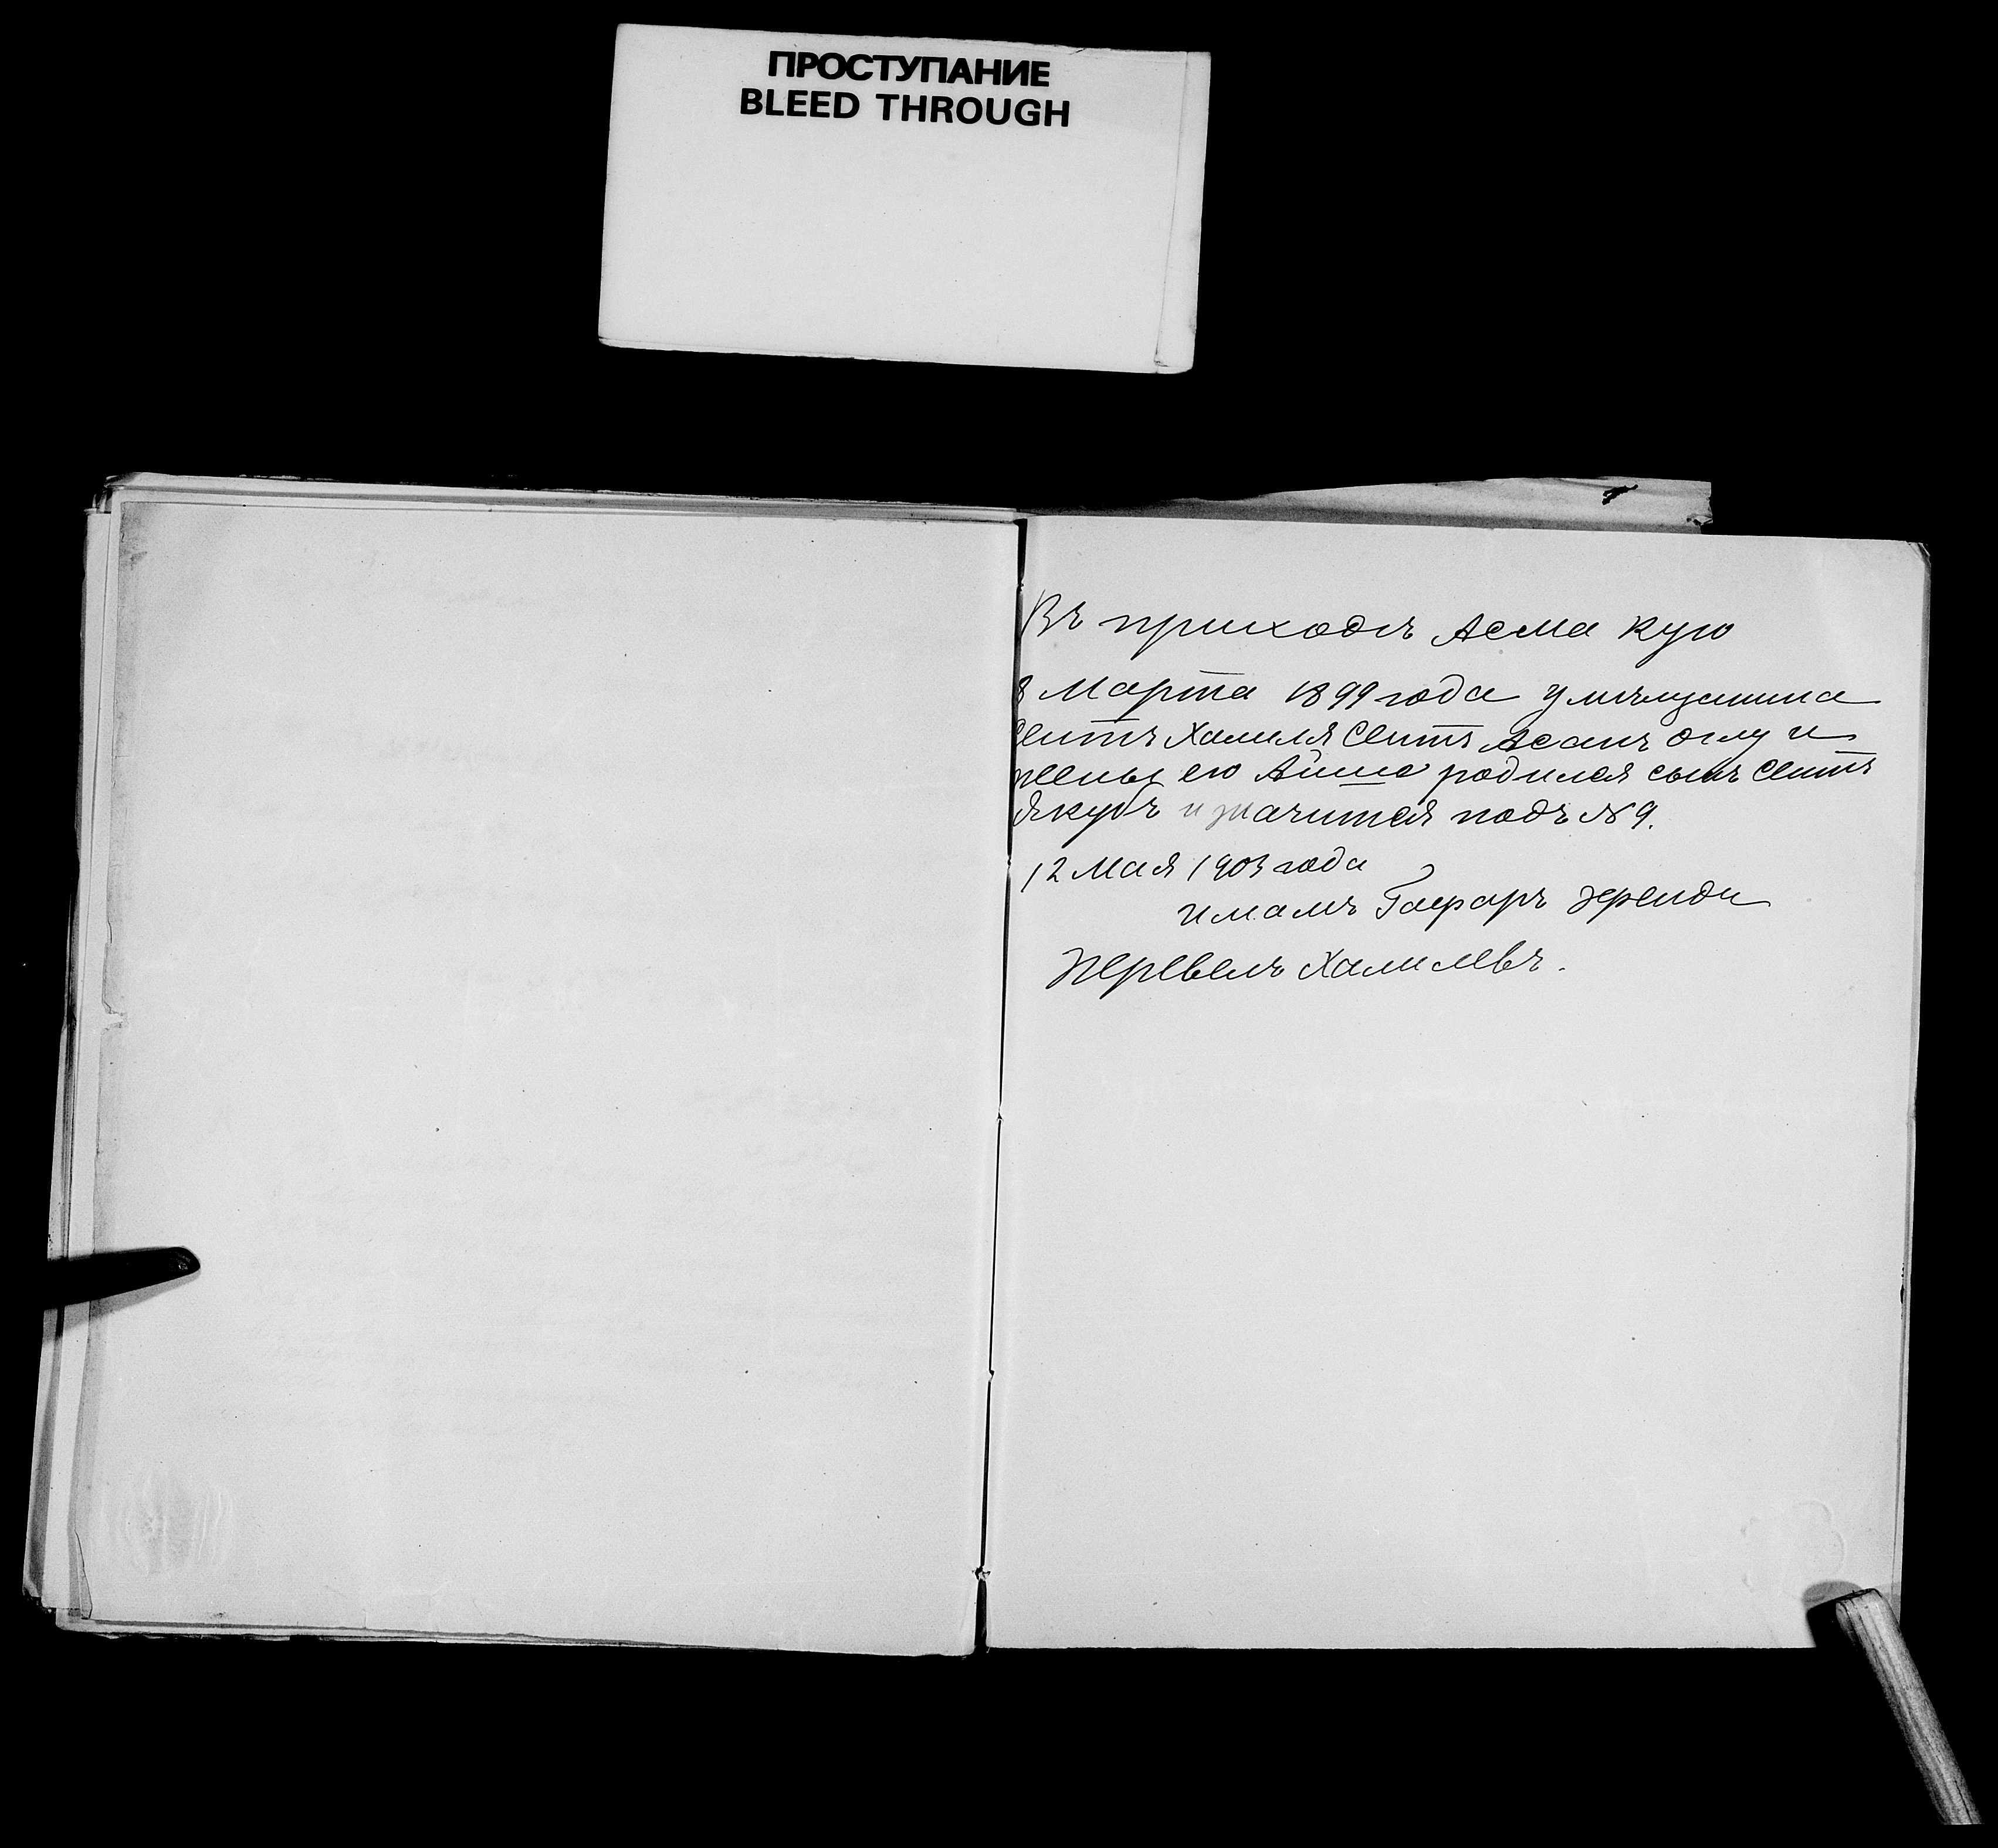 ПРОСТУПАНИЕ
BLEED THROUGH
Въ приходѣ Асма кую
8 Марта 1899 года у мѣщанина
Сеитъ Халиля Сеитъ Асанъ оглу и
жены его Айше родился сынъ Сеитъ
Якубъ и значится подъ № 9.
12 Мая 1903 года
имамъ Гафаръ эфенди
Перевелъ Халилевъ.